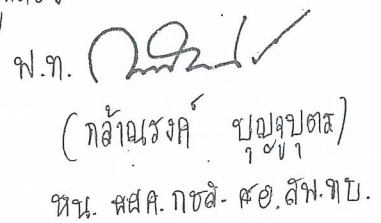 พ.ท.
(กล้าณรงค์ บุญจูบุตร)
หน. ผสค. กชส. ศอ. สพ.ทบ.